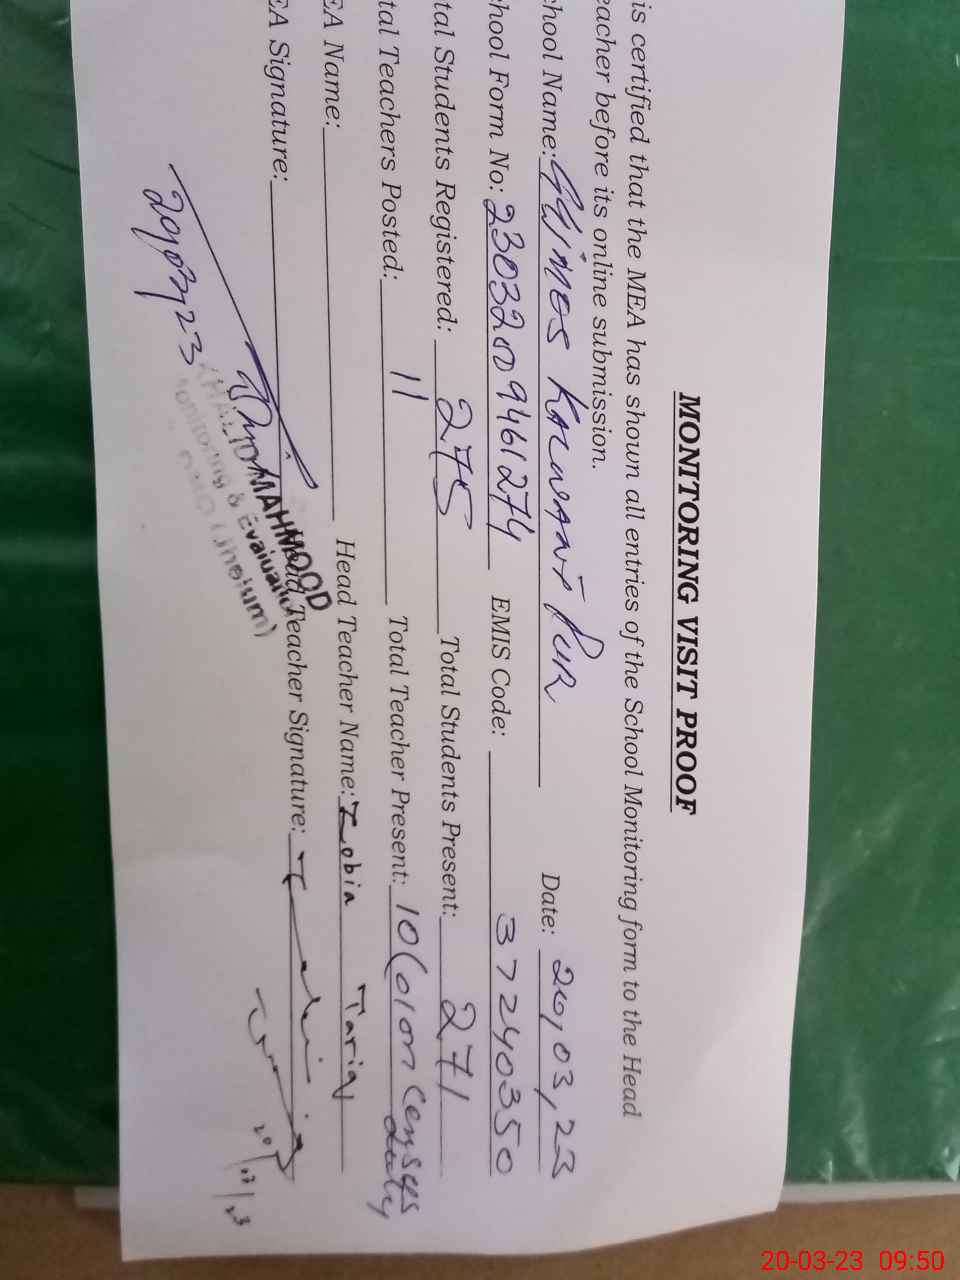 MONITORING VISIT PROOF
is certified that the MEA has shown all entries of the School Monitoring form to the Head
eacher before its online submission.
chool Name: Date: 20,03,23
chool Form No: EMIS Code: 37240350
tal Students Registered: 275 Total Students Present: 271
tal Teachers Posted: 11 Total Teacher Present: 10(01 on Census duty
EA Name: Head Teacher Name: Zobia Tariq
EA Signature: Teacher Signature:
MAHMOOD
20-03-23 09:50